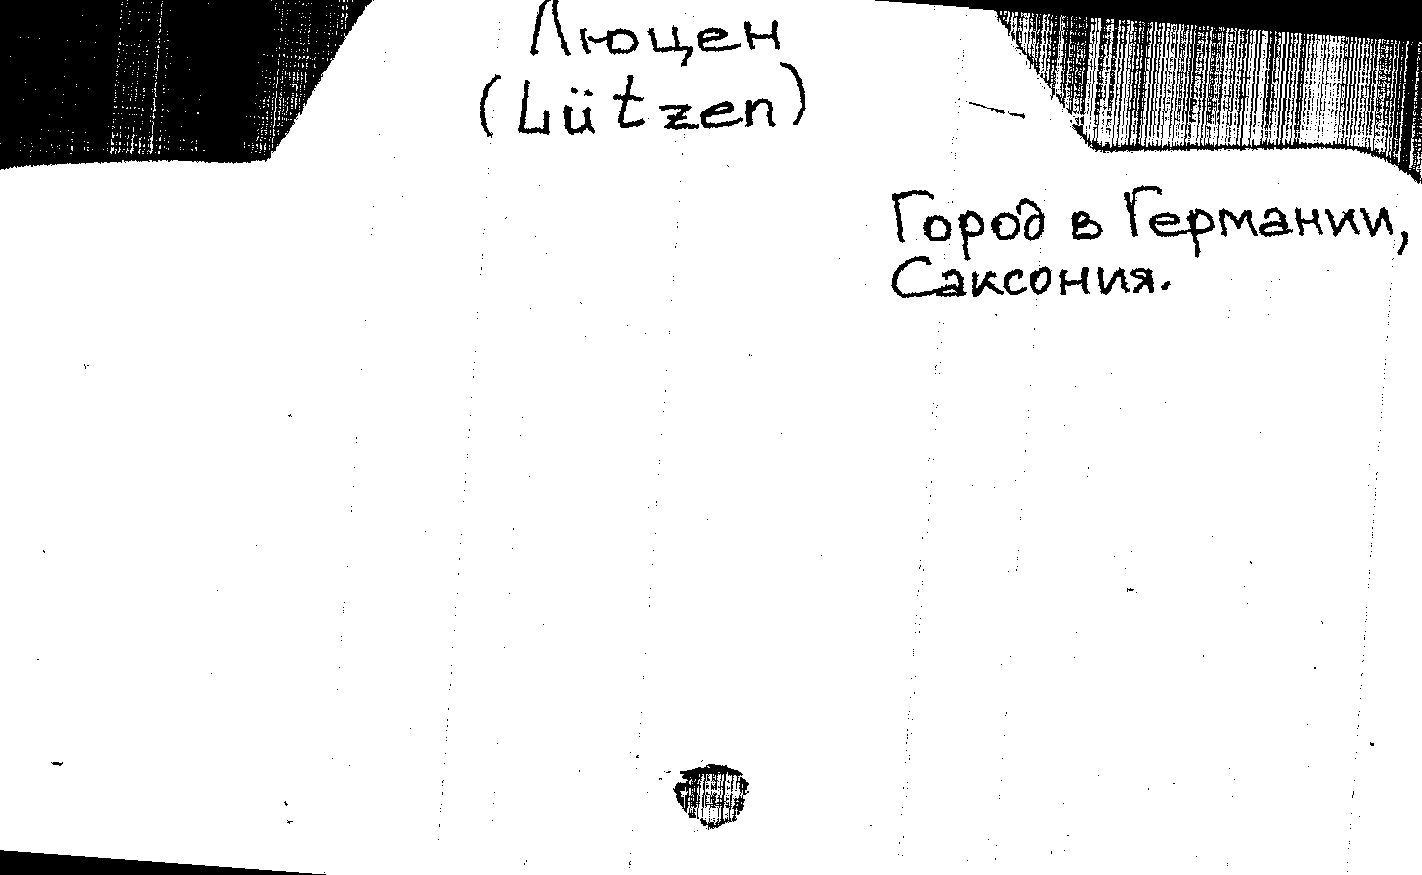 Люцен
(Lützen)
Город в Германии,
Саксония.